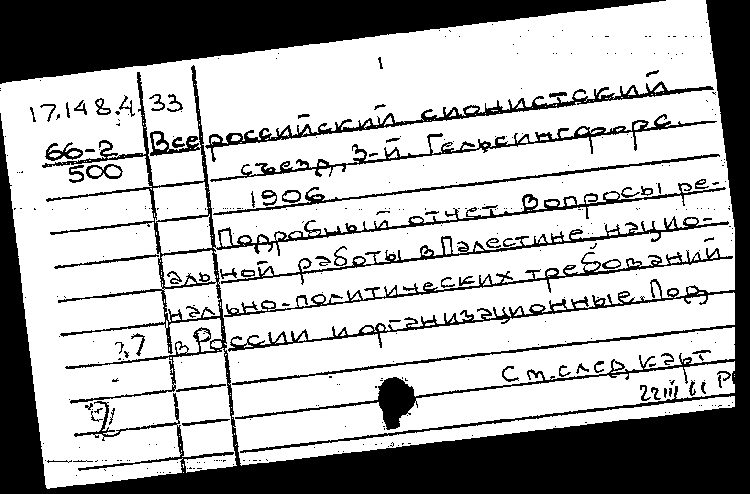 1
17.148.4.33
66-2
500
Всероссийский сионистский
съезд, 3-й. Гельсингфорс.
1906.
Подробный отчет. Вопросы ре-
альной работы в Палестине, нацио-
нально-политических требований
в России и организационные. Под
37
См. след. карт
22 III 66